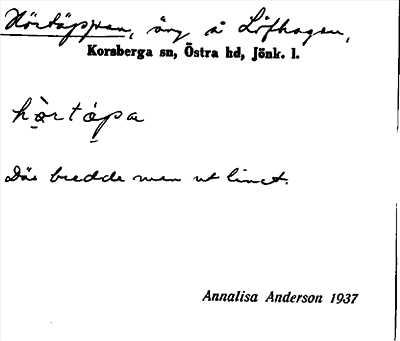 Hörtäppan, äng å Löfhagen,
Korsberga sn, Östra hd, Jönk. l.
hòrtápa
Där bredde man ut linet.
Annalisa Anderson 1937